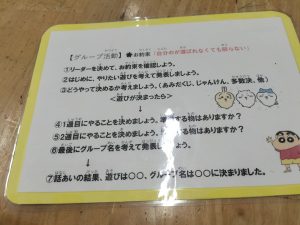 【グループ活動】★お約束「自分のが選ばれなくても怒らない」
①リーダーを決めて、お約束を確認しよう。
②はじめに、やりたい遊びを考えて発表しましょう。
③どうやって決めるか考えましょう。（あみだくじ、じゃんけん、多数決、他）
＜遊びが決まったら＞
↓
④1週目にやることを決めましょう。準備する物はありますか？
⑤2週目にやることを決めましょう。準備する物はありますか？
⑥最後にグループ名を考えて発表しましょう。
↓
⑦話あいの結果、遊びは〇〇、グループ名は〇〇に決まりました。